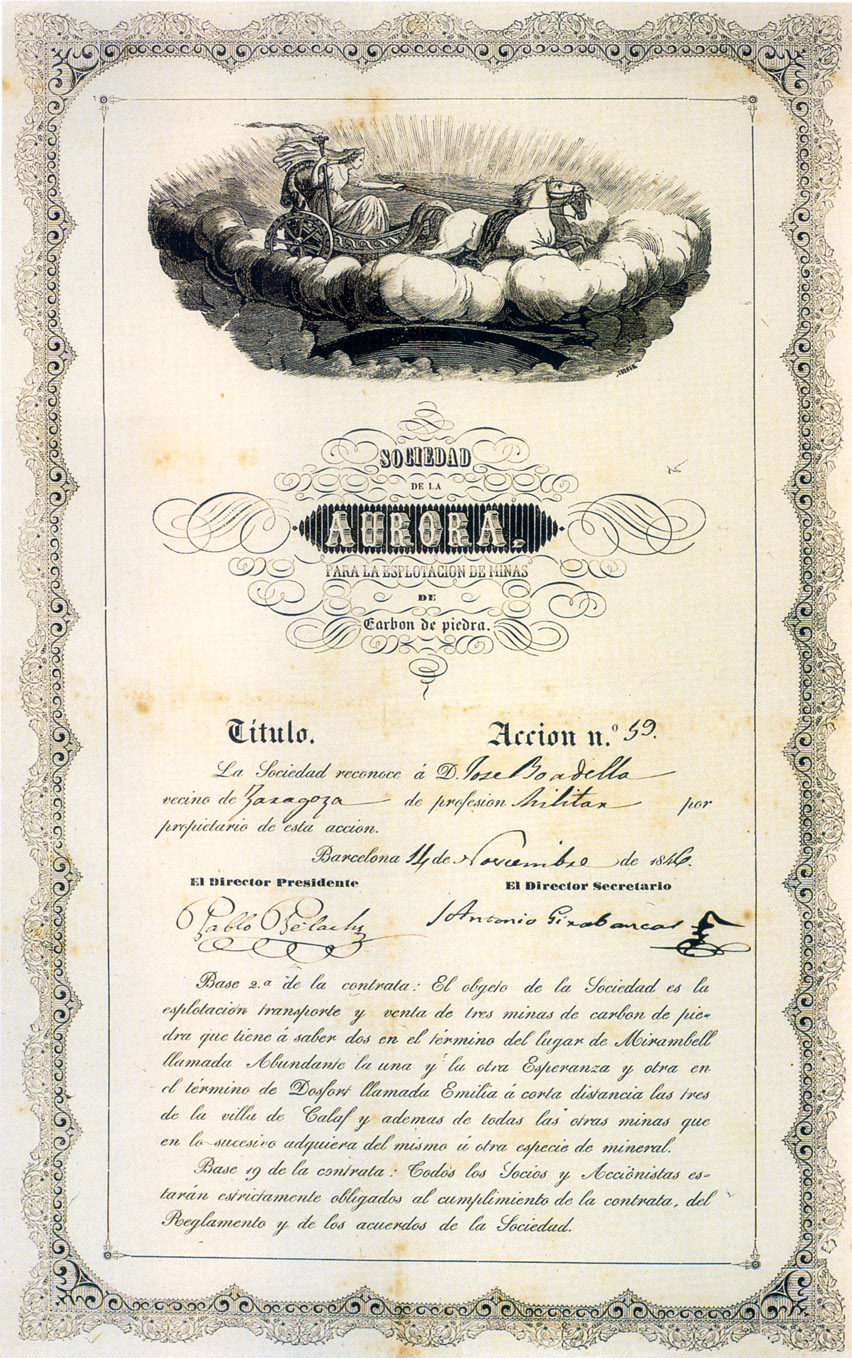 SOCIEDAD
DE LA
AURORA,
PARA LA ESPLOTACION DE MINAS
DE
Carbon de piedra.
Título. Accion n.º 59.
La Sociedad reconoce á D. Jose Boadella
vecino de Zaragoza de profesion Militar por
propietario de esta accion.
Barcelona 14 de Noviembre de 1846.
El Director Presidente El Director Secretario
Pablo Antonio Girabancas
Base 2.ª de la contrata: El obgeto de la Sociedad es la
esplotación transporte y venta de tres minas de carbon de pie-
dra que tiene á saber dos en el término del lugar de Mirambell
llamada Abundante la una y la otra Esperanza y otra en
el término de Dosfort llamada Emilia á corta distancia las tres
de la villa de Calaf y ademas de todas las otras minas que
en lo sucesivo adquiera del mismo ú otra especie de mineral.
Base 19 de la contrata: Todos los Socios y Acciónistas es-
tarán estrictamente obligados al cumplimiento de la contrata, del
Reglamento y de los acuerdos de la Sociedad.